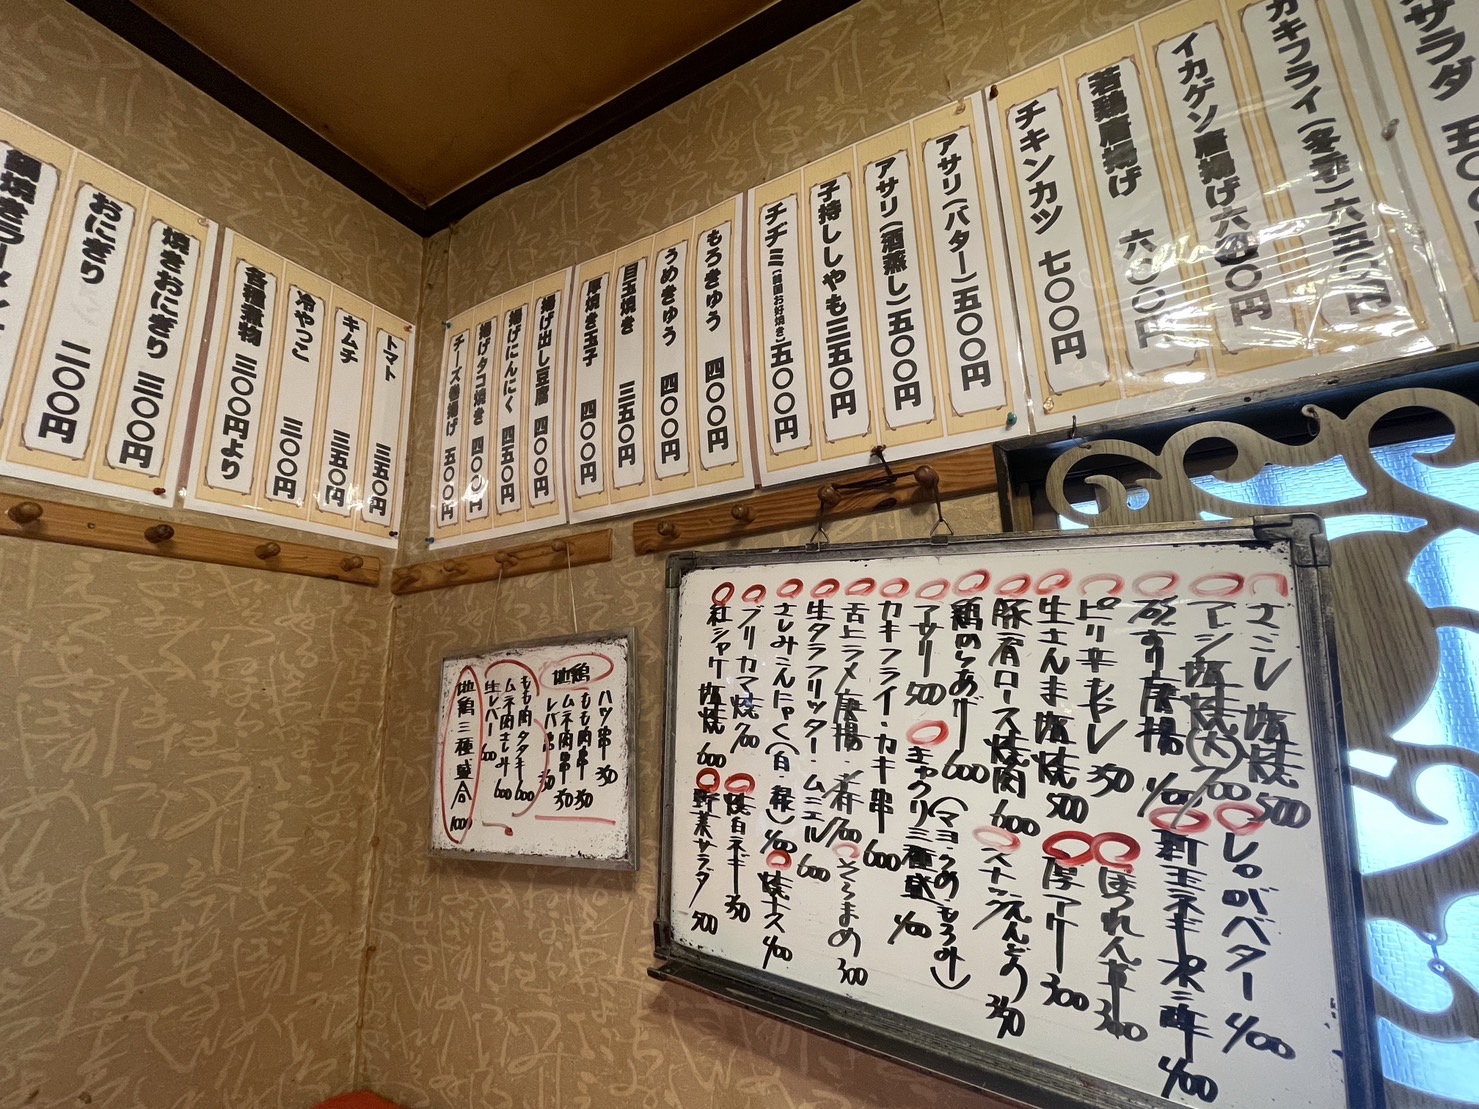 サラダ 五〇〇
カキフライ(冬季)六五〇円
イカゲソ唐揚げ 六〇〇円
若鶏唐揚げ 六〇〇円
チキンカツ 七〇〇円
アサリ(バター)五〇〇円
アサリ(酒蒸し)五〇〇円
子持ししゃも 三五〇円
チヂミ(韓国お好焼き)五〇〇円
もろきゅう 四〇〇円
うめきゅう 四〇〇円
目玉焼き 三五〇円
厚焼き玉子 四〇〇円
揚げ出し豆腐 四〇〇円
揚げにんにく 四五〇円
揚げタコ焼き 四〇〇円
チーズ巻揚げ 五〇〇円
トマト 三五〇円
キムチ 三五〇円
冷やっこ 三〇〇円
各種漬物 三〇〇円より
焼きおにぎり 三〇〇円
おにぎり 二〇〇円
鍋焼きラーメン
地鶏
ハツ串 350
もも肉串 350
ムネ肉串 350
レバ串 350
もも肉タタキ 600
ムネ肉さしみ 600
生レバー 600
地鶏三種盛合 1000
さんし塩焼 500
アジ塩焼(大) 700
砂ずり唐揚 400
ピリ辛 350
生さんま塩焼 500
豚肩ロース焼肉 600
鶏のからあげ 600
アサリ 500
カキフライ・カキ串 600
舌ヒラメ唐揚
生タラフリッター・ムニエル 600
さしみこんにゃく(白・緑) 400
ブリカマ焼 700
紅シャケ塩焼 600
しゃがバター 400
新玉ネギ 400
ほうれん草 300
厚アゲ 300
スナックえんどう 350
キャウリ三種盛 400
(マヨ・うめ・もろみ)
そらまめ 300
焼ナス 400
焼白ネギ 350
野菜サラダ 500